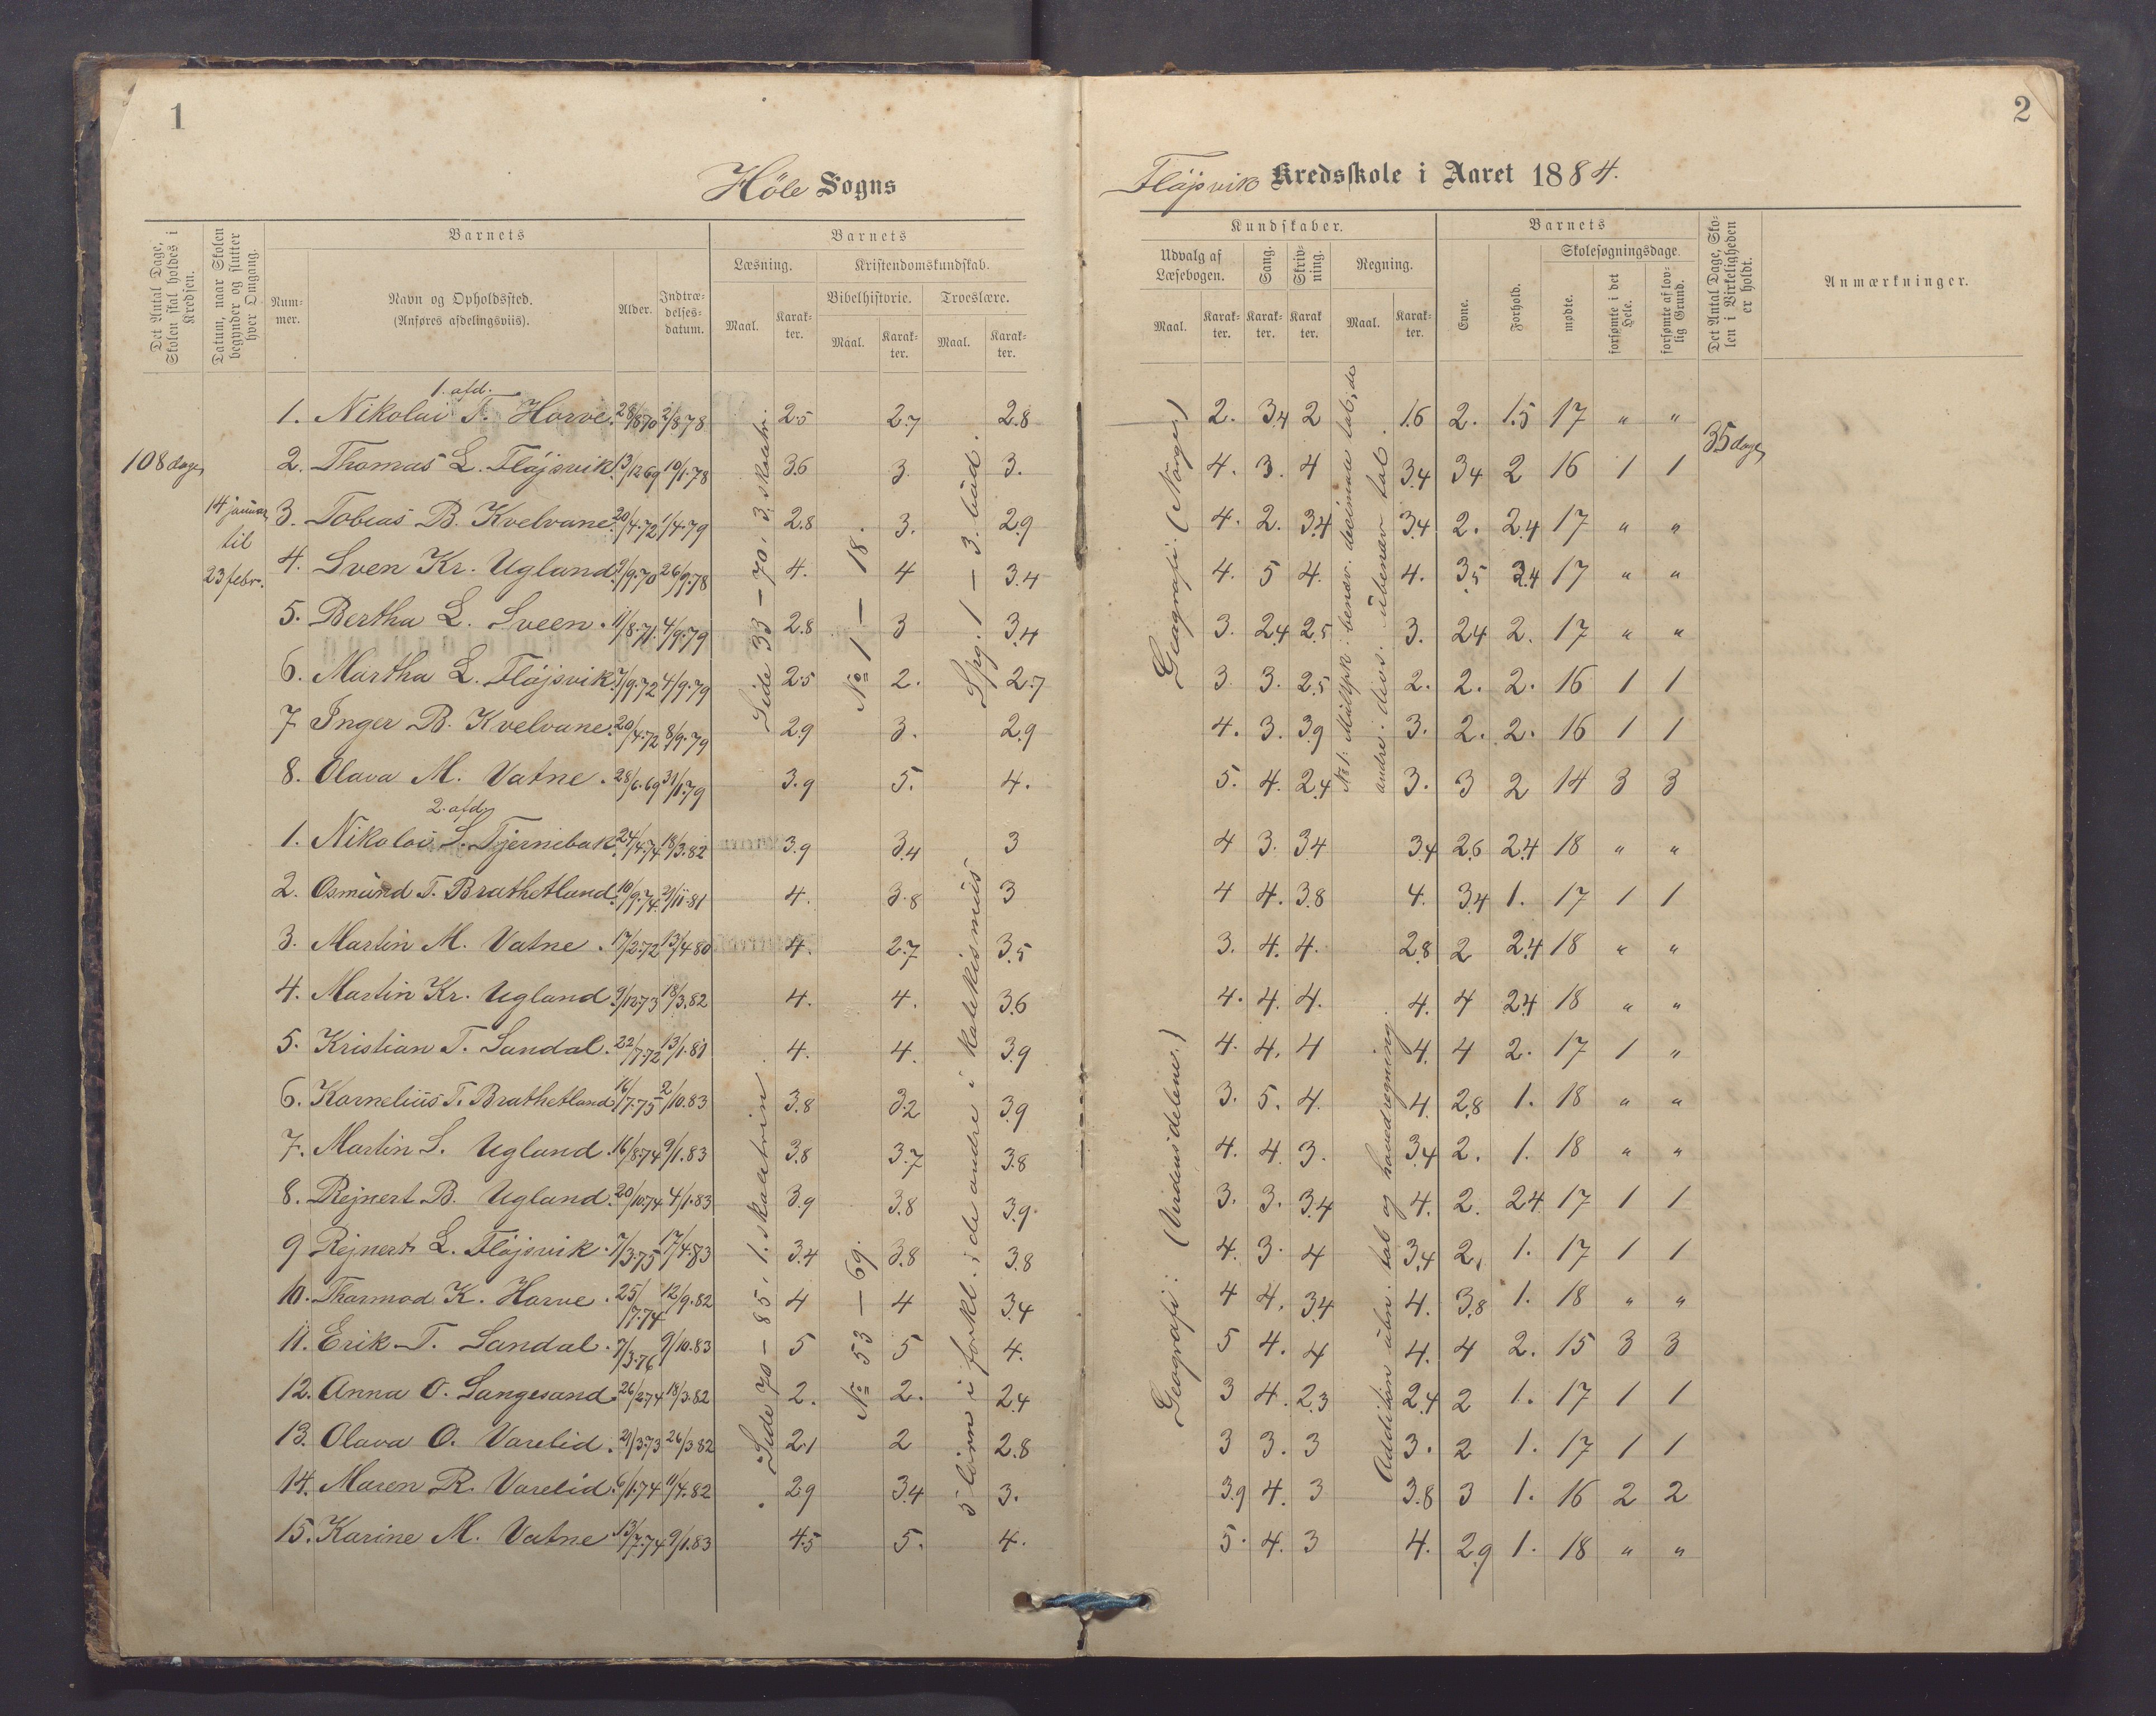 1
2
Höle Sogns
Fløjsvik Kredsskole i Aaret 1884.
Det Antal Dage, Skolen skal holdes i Kredsen.
Datum, naar Skolen begynder og slutter hver Omgang.
Barnets
Nummer.
Navn og Opholdssted. (Anføres afdelingsviis).
Alder.
Indtrædelsesdatum.
Barnets
Læsning.
Maal.
Karakter.
Kristendomskundskab.
Bibelhistorie.
Maal.
Karakter.
Troeslære.
Maal.
Karakter.
Kundskaber.
Udvalg af Læsebogen.
Maal.
Karakter.
Sang.
Karakter.
Skrivning.
Karakter
Regning.
Maal.
Karakter.
Barnets
Evne.
Forhold.
Skolesøgningsdage.
mødte.
forsømte i det Hele.
forsømte af lovlig Grund.
Det Antal Dage, Skolen i Virkeligheden er holdt.
Anmærkninger.
108 dage
14 januar
til
23 febr.
35 dage
Side 33 – 70, 3. skoletri.
No 1 – 18.
Spg. 1 – 3. bud.
Geografi: (Norge)
1. afd.
1. Nikolai T. Horve. 28/8.70 2/8.78 2.5 2.7 2.8 2. 3.4 2 1.6 2. 1.5 17 " "
2. Thomas L. Fløjsvik 13/12.69 10/1.78 3.6 3. 3. 4. 3. 4 3.4 3.4 2 16 1 1
3. Tobias B. Kvelvane. 20/4.72 1/4.79 2.8 3. 2.9 4. 2. 3.4 3.4 2. 2.4 17 " "
4. Sven Kr. Ugland. 9/9.70 26/9.78 4. 4 3.4 4. 5 4. 4. 3.5 2.4 17 " "
5. Bertha L. Sveen. 11/8.71. 4/9.79 2.8 3 3.4 3. 2.4 2.5 3. 2.4 2. 17 " "
6. Martha L. Fløjsvik. 7/9.72 4/9.79 2.5 2. 2.7 3. 3. 2.5 2. 2. 2. 16 1 1
7. Inger B. Kvelvane. 20/4.72 8/9.79 2.9 3. 2.9 4. 3. 3.9 3. 2. 2. 16 1 1
8. Olava M. Vatne. 28/6.69 31/1.79 3.9 5. 4. 5. 4. 2.4 3. 3 2 14 3 3
2. afd.
Side 70 – 85, 1. skoletrin
No 53 – 69.
i katekismus
Geografi: (Verdensdelene.)
Addition uben. tal og hovedregning.
1. Nikolai S. Tjernsbak. 24/4.74 18/3.82 3.9 3.4 3 4 3. 3.4 3.4 2.6 2.4 18 " "
2. Osmund T. Brathetland. 10/9.74. 21/11.81 4. 3.8 3 4 4. 3.8 4. 3.4 1. 17 1 1
3. Martin M. Vatne. 17/2.72 13/4.80 4. 2.7 3.5 3. 4. 4. 2.8 2 2.4 18 " "
4. Martin Kr. Ugland. 9/12.73 18/3.82 4. 4. 3.6 4. 4. 4. 4. 4 2.4 18 " "
5. Kristian T. Sandal. 22/7.72 13/1.81 4. 4. 3.9 4. 4. 4 4. 4 2. 17 1 "
6. Kornelius T. Brathetland 16/7.75 2/10.83 3.8 3.2 3.9 3. 5. 4. 4. 2.8 1. 18 " "
7. Martin S. Ugland. 16/8.74 9/1.83 3.8 3.7 3.8 4. 4. 3. 3.4 2. 1. 18 " "
8. Rejnert B. Ugland. 20/10.74 4/1.83 3.9 3.8 3.9. 3. 3. 3.4 4. 2. 2.4 17 1 1
9 Rejnert L. Fløjsvik. 7/3.75 17/4.83 3.4 3.8 3.8 4. 3. 4 3.4 2. 1. 17 1 1
10. Thormod K. Horve. 25/7.74 12/9.82 4 4 3.4 4 4. 3.4 4. 3.8 1. 18 " "
11. Erik T. Sandal. 7/3.76 9/10.83 5 5 4. 5 4. 4 4. 4 2. 15 3 3
12. Anna O. Langesand. 26/2.74 18/3.82 2. 2. 2.4 3 4. 2.3 2.4 2 1. 17 1 1
13. Olava O. Varelid. 21/3.73 26/3.82 2.1 2 2.8 3 3. 3 3. 2 1. 17 1 1
14. Maren R. Varelid. 6/1.74 11/4.82 2.9 3.4 3. 3.9 4. 3 3.8 3 1. 16 2 2
15. Karine M. Vatne 13/7.74 9/1.83 4.5 5. 4. 5. 4. 3 4. 2.9 1. 18 " "